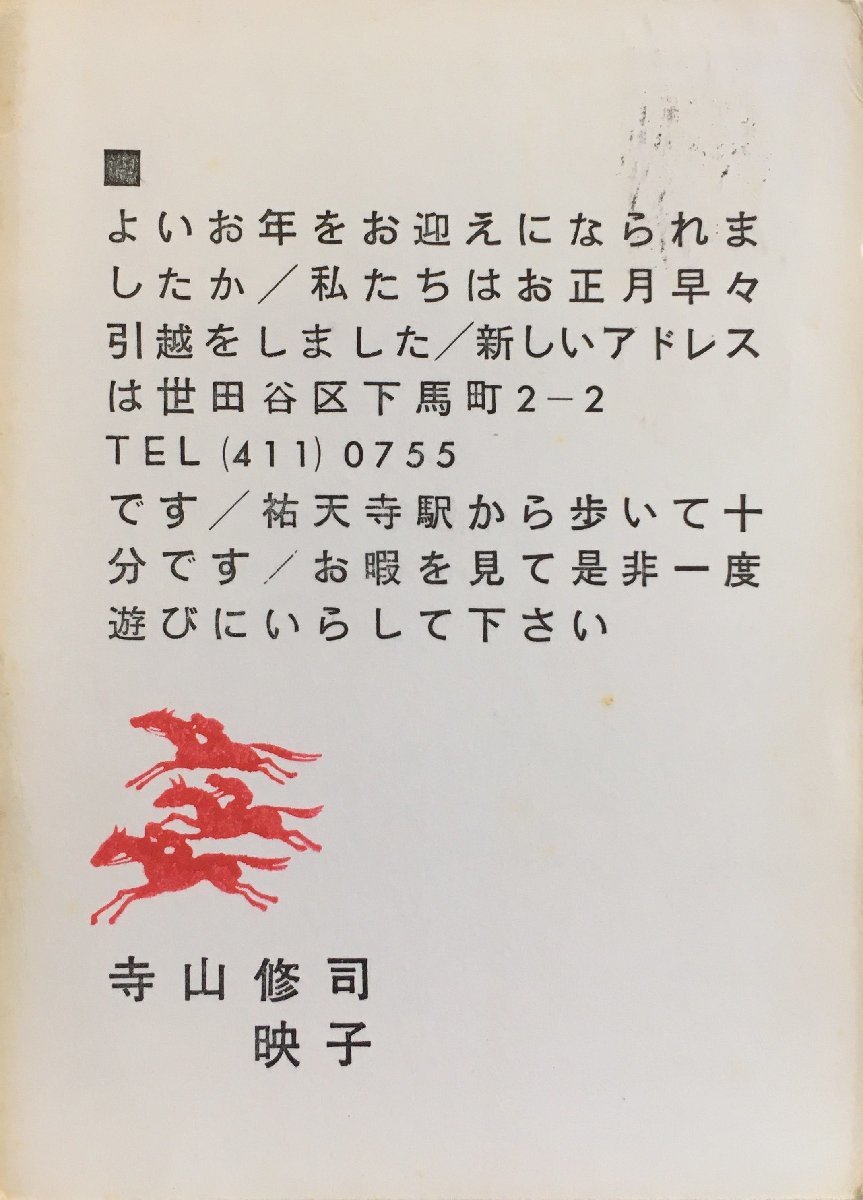 よいお年をお迎えになられま
したか／私たちはお正月早々
引越をしました／新しいアドレス
は世田谷区下馬町2－2
TEL (411) 0755
です／祐天寺駅から歩いて十
分です／お暇を見て是非一度
遊びにいらして下さい
寺山修司
映子